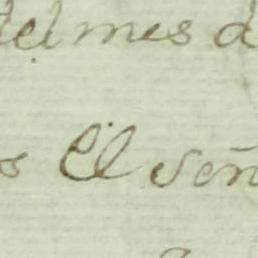 del mes d
s El Señ